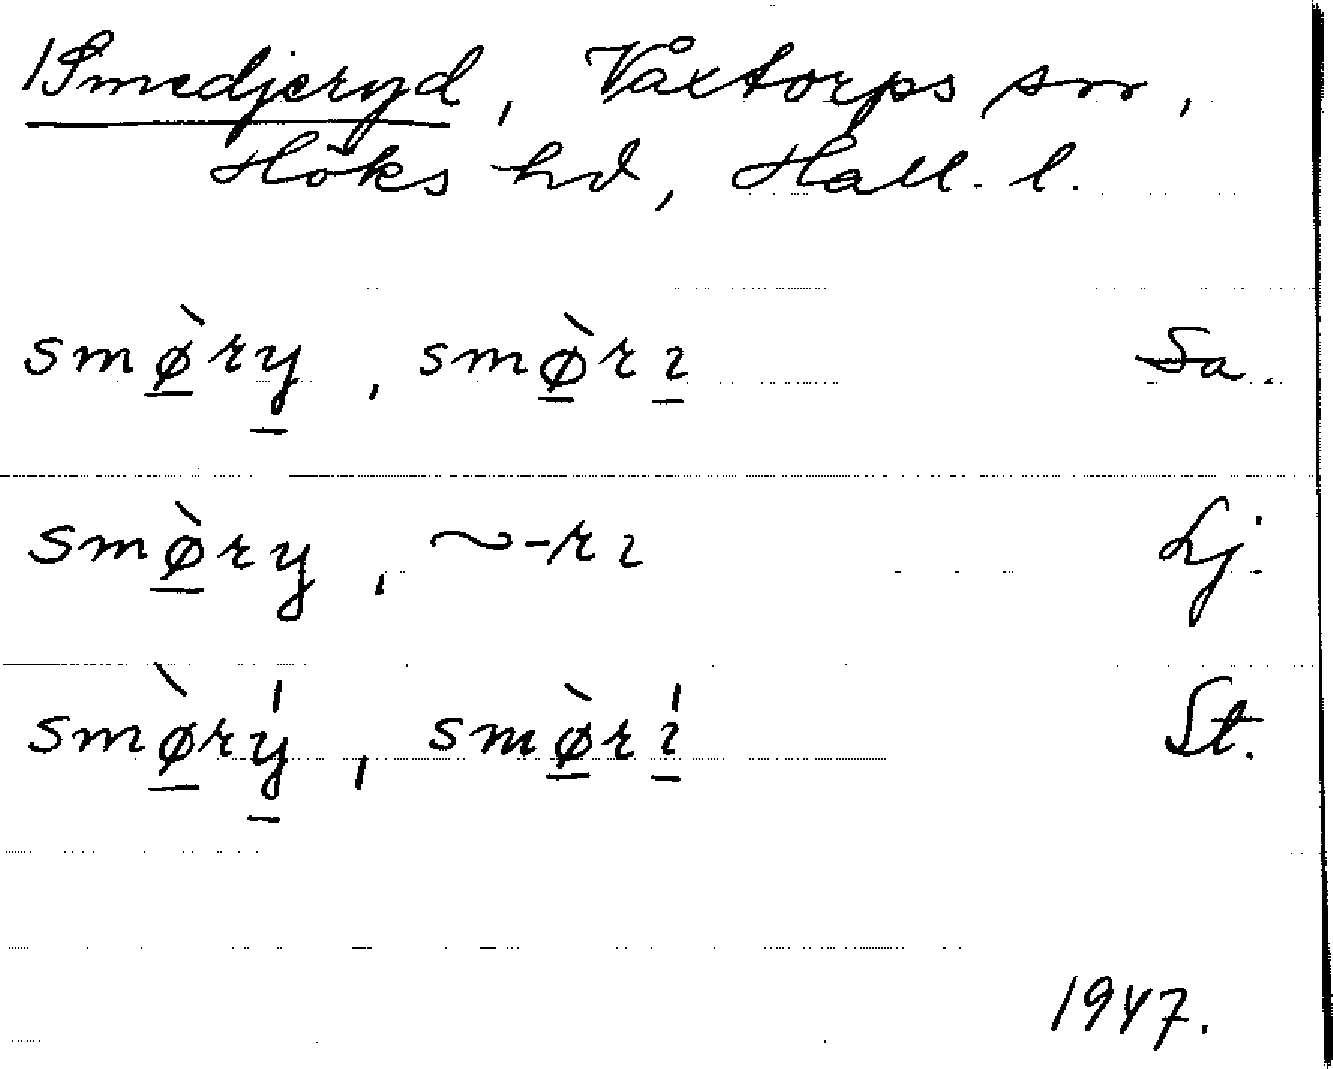 1Smedjeryd, Våxtorps sn,
Höks hd, Hall. l.
smø̲̀ry̲, smø̲̀rı̲ Sa.
smø̲̀ry, ~-rı Lj.
smø̲̀rý̲, smø̲̀rí̲ St.
1947.